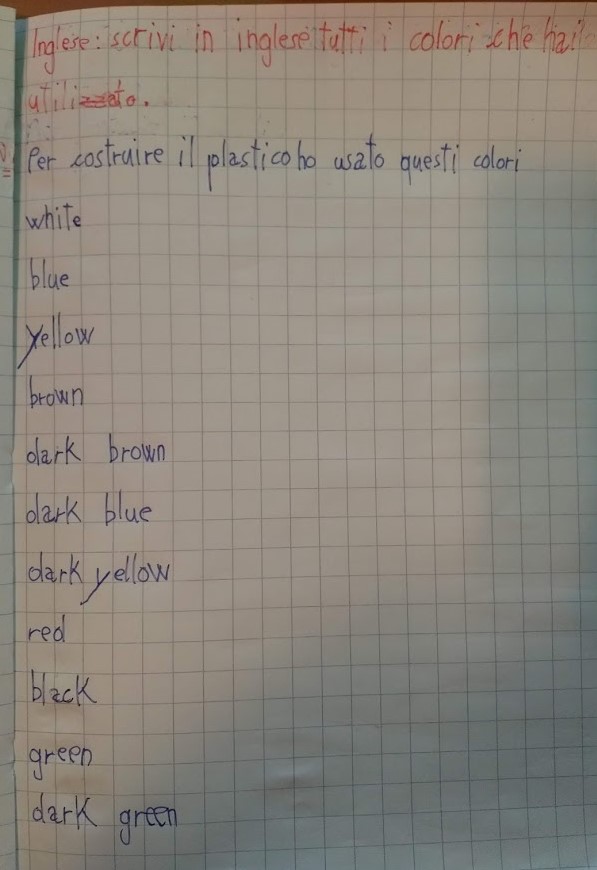 Inglese: scrivi in inglese tutti i colori che hai
utilizzato.
Per costruire il plastico ho usato questi colori
white
blue
yellow
brown
dark brown
dark blue
dark yellow
red
black
green
dark green